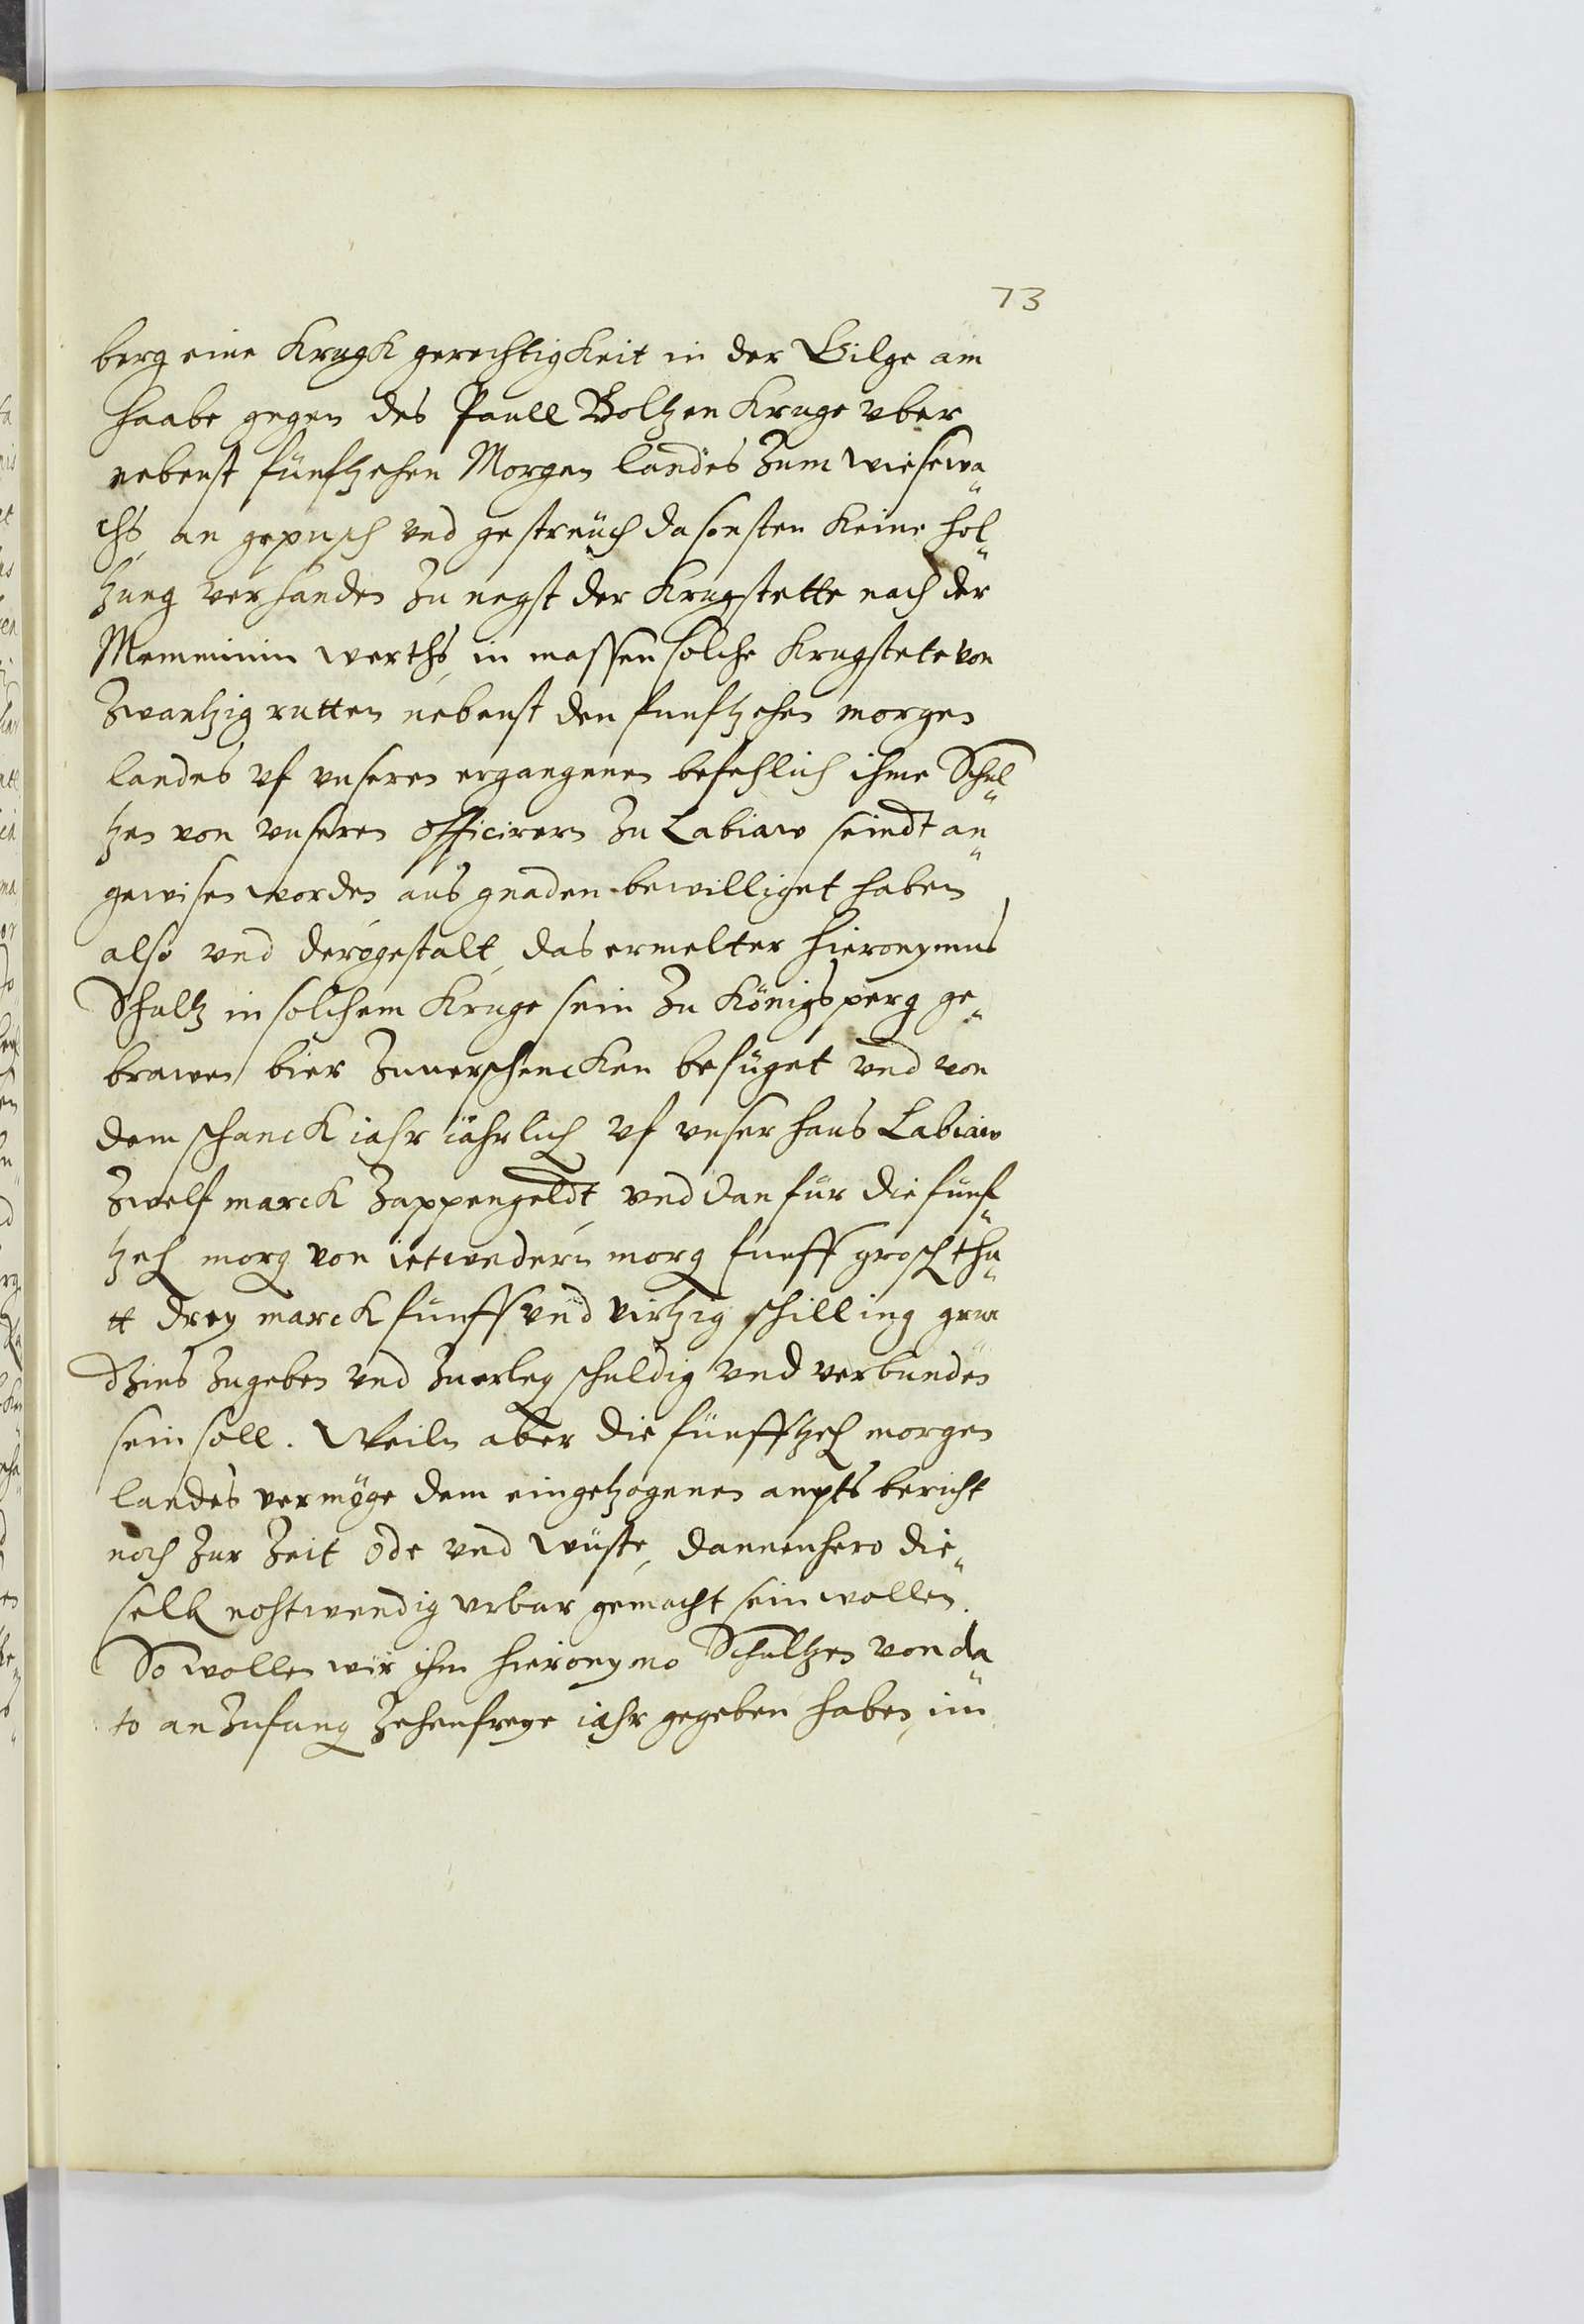 73
berg eine Krugk gerechtigkeit in der Gilge am
Haabe gegen des Paull Boltzen Kruge vber
nebenst fünftzehen Morgen landes Zum wiesewa„
chs, an gepusch vnd gestreüch da sonsten Keine hol„
tzung verhanden Zu negst der Krugstette nach der
werths, in massen solche Krugstete von
Zwantzig rutten nebenst den funftzehen morgen
landes vf vnseren ergangenen befehlich ihme Schul„
tzen von vnseren Officirern Zu Labiaw seindt an„
gewisen worden aus gnaden bewilliget haben
also vnd derogestalt, das ermelter Hieronymus
Schultz in solchem Kruge sein Zu Königsperg ge„
brawen bier Zuuerschencken befüget vnd von
dem schanck iahr iährlich vf vnser haus Labiaw
Zwelf marck Zappengeldt, vnd dan für die fünf„
tzeh morg von ietwedern morg funff grosch thu„
tt drey marck funff vnd virtzig schilling grun
dtzins Zugeben vnd Zuerleg schuldig vnd verbunden
sein soll. Weiln aber die fünfftzeh morgen
landes vermöge dem eingetzogenen ampts bericht
noch Zur Zeit öde vnd wüste, dannenhero die„
selb nohtwendig vrbar gemacht sein wollen.
So wollen wir ihm Hieronymo Schultzen von da„
to an Zufang Zehenfreye iahr gegeben haben, im